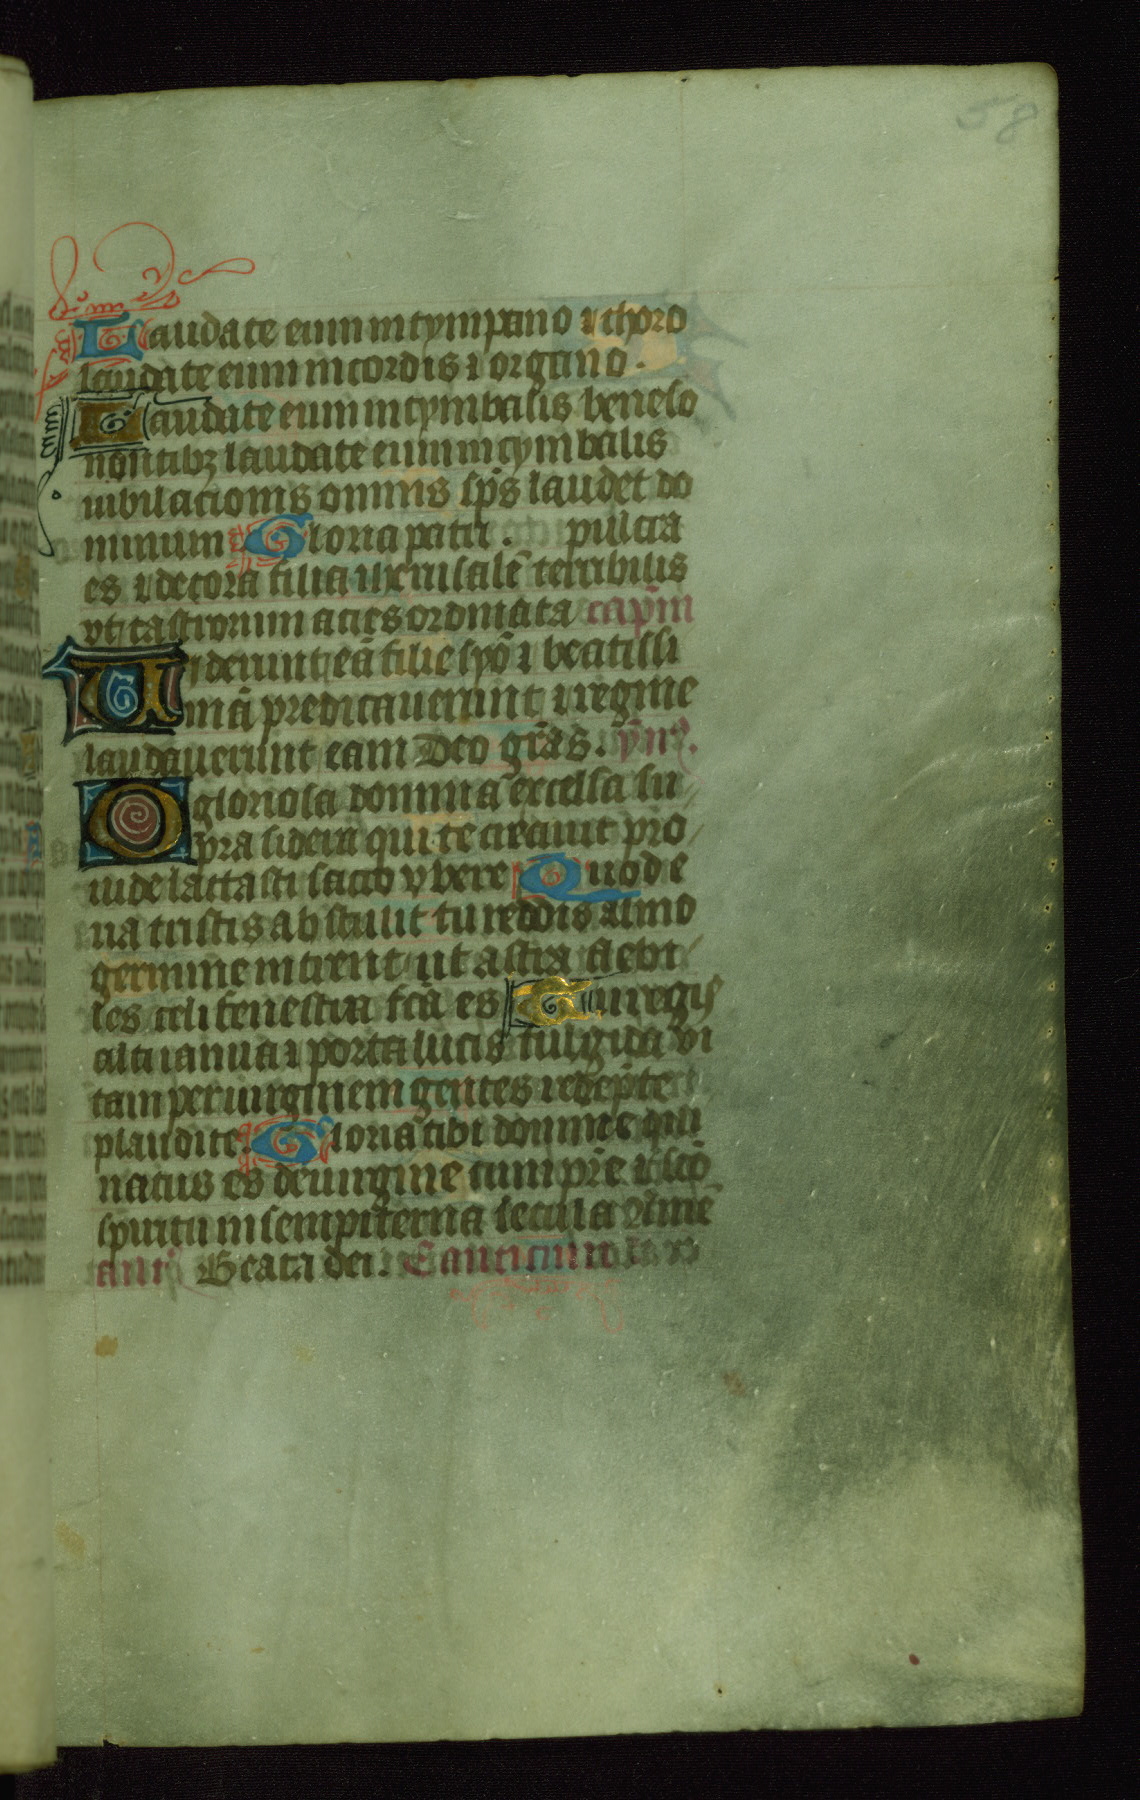 58
Laudate eum in tympano ⁊ choro
laudate eum in cordis ⁊ organo.
Laudate eum in cymbalis beneso
nantibꝫ laudate eum in cymbalis
iubilacionis omnis sp̄s laudet do
minum Gloria patri. pulcra
es ⁊ decora filia iherusalē terribilis
vt castrorum acies ordinata capl̄m
Uiderunt eā filie syō ⁊ beatissi
mā predicauerunt ⁊ regine
laudauerunt eam Deo gr̄as. ẏmꝰ.
O gloriosa domina excelsa su
pra sidera qui te creauit pro
uide lactasti sacro vbere Quod e
ua tristis abstulit tu reddis almo
germine intrent ut astra flebi
les celi fenestra fcā es Tu regis
alti ianua ⁊ porta lucis fulgida vi
tam per uirginem gentes redēpte
plaudite. Gloria tibi domine qui
natus es de uirgine cum pr̄e ⁊ scō
spiritu in sempiterna secula Amē
añ Beata dei. Canticum